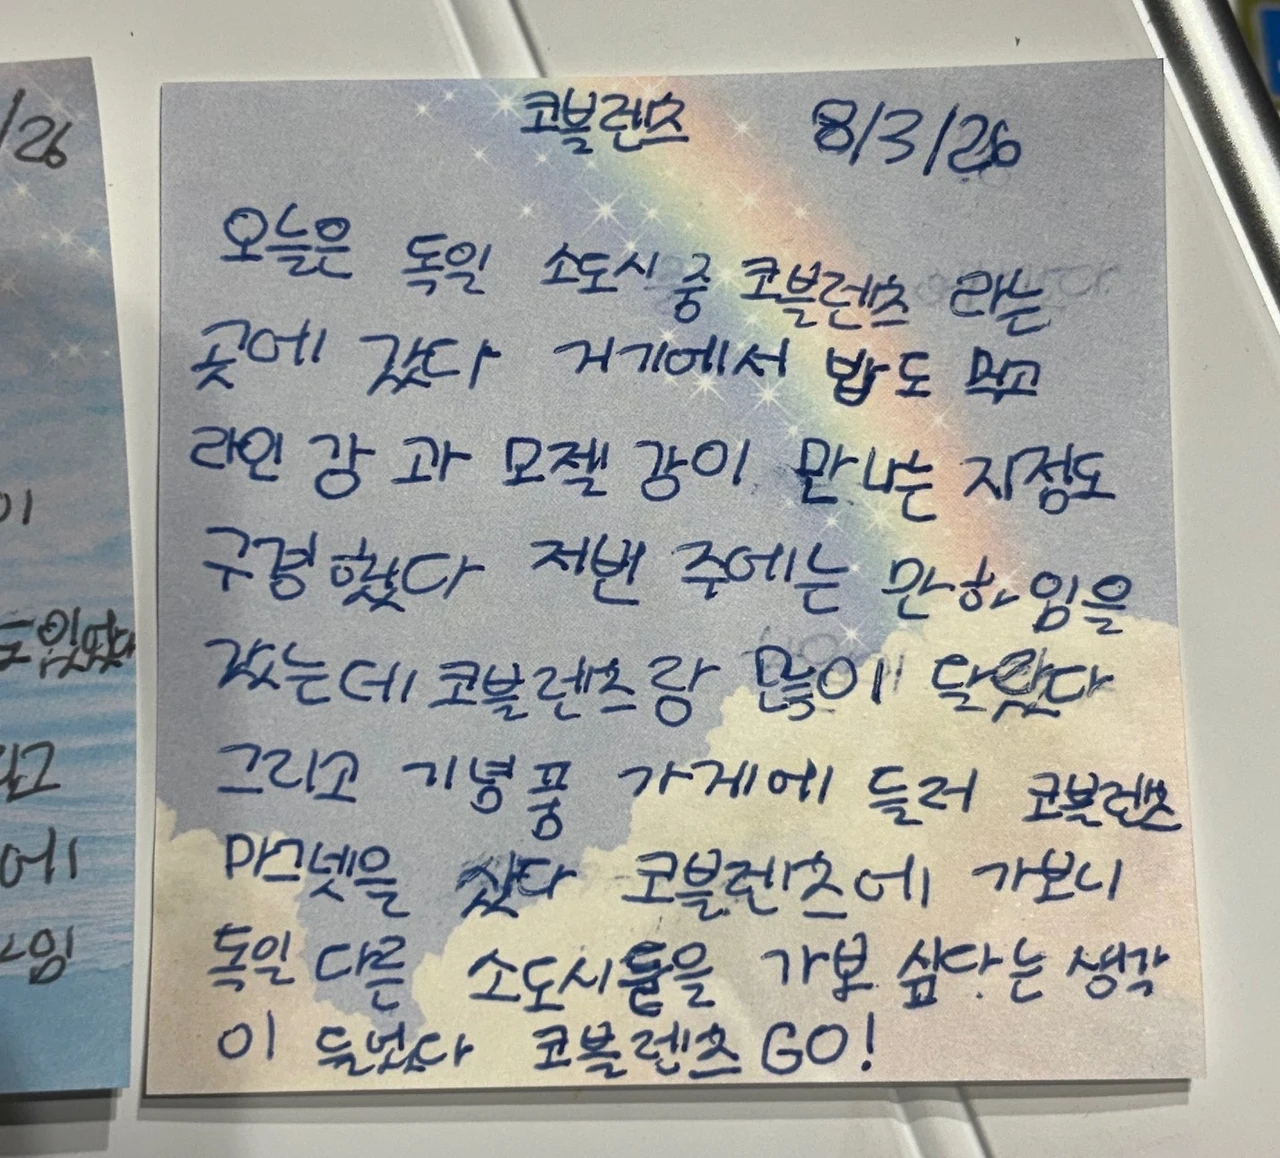 /26
이
도 있었다
고
에
임
코블렌츠 8/3/26
오늘은 독일 소도시 중 코블렌츠 라는
곳에 갔다 거기에서 밥도 먹고
라인 강 과 모젤 강이 만나는 지점도
구경했다 저번 주에는 만하임을
갔는데 코블렌츠랑 많이 달랐다
그리고 기념품 가게에 들러 코블렌츠
마그넷을 샀다 코블렌츠에 가보니
독일 다른 소도시들을 가보 싶다는 생각
이 들었다 코블렌츠 GO!